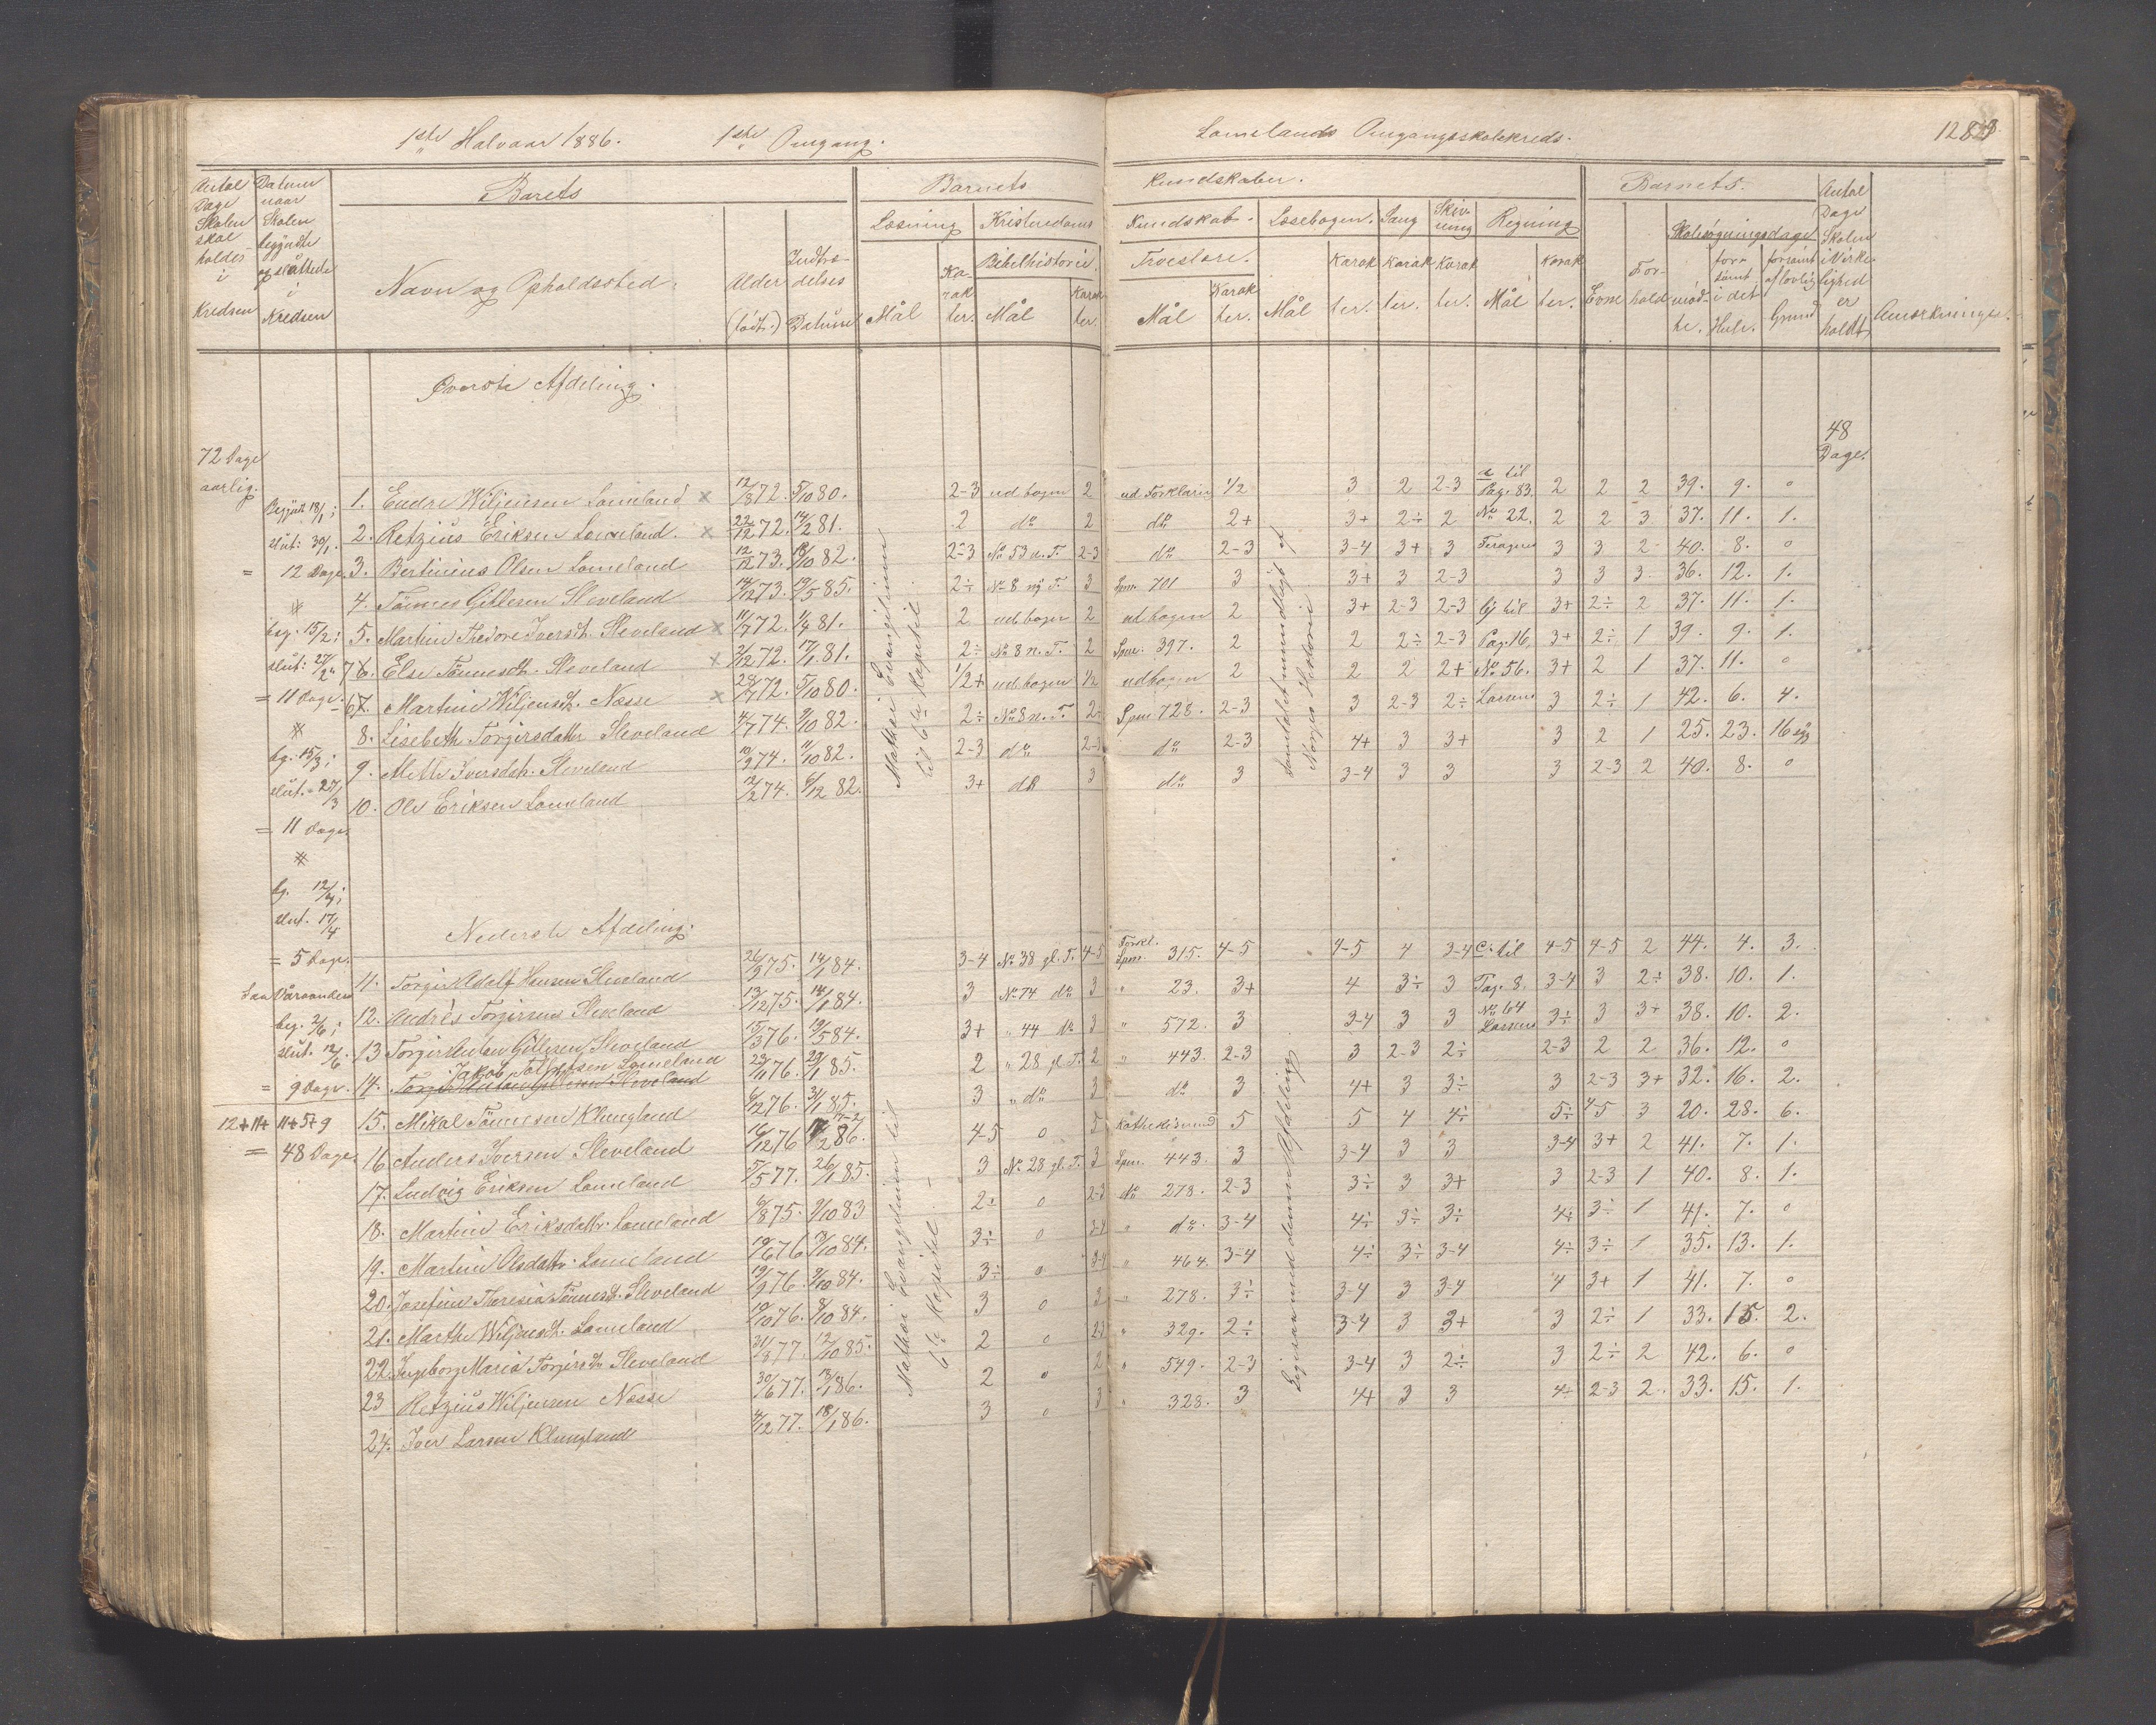 1ste Halvaar 1886. 1ste Omgang.
Lomelands Omgangsskolekreds.
128
Antal Dage Skolen skal holdes i Kredsen
Datum naar Skolen begyndte og sluttede i Kredsen
Barets
Navn og Opholdssted.
Alder (født.)
Indtrædelses Datum
Barnets
Kundskaber.
Læsning
Mål
Karakter.
Kristendoms Kundskab.
Bibelhistorie.
Mål
Karakter.
Troeslære.
Mål
Karakter.
Læsebogen.
Mål
Karakter.
Sang
Karakter.
Skrivning
Karakter.
Regning
Mål
Karakter.
Barnets.
Evne
Forhold
Skolesøgningsdage
mødte.
forsømt i det Hele.
forsømt af lovlig Grund
Antal Dage Skolen i Virkelighed er holdt
Anmærkninger.
Øverste Afdeling.
72 Dage aarlig.
48 Dage.
Begyndt 18/1;
slut: 30/1.
= 12 Dage.
beg. 15/2;
slut: 27/2
= 11 Dage.
bg. 15/3;
slut. 27/3
= 11 Dage.
bg. 12/4;
slut. 17/4
= 5 Dage.
beg. 2/6;
slut. 12/6.
= 9 Dage.
12+11+11+5+9
= 48 Dage.
Matthæi Evangelium til 6te Kapitel.
Samtalet mundligt af Norges Historie
1. Endre Wiljensen Lomeland x 12/8 72. 5/10 80. 2-3 ud bogen 2 ud Forklaring 1/2 3 2 2-3 a til Pag. 83. 2 2 2 39. 9. 0
2. Retzius Eriksen Lomeland. x 22/12 72. 14/2 81. 2 do 2 do 2+ 3+ 2÷ 2 No 22. 2 2 3 37. 11. 1.
3. Bertinius Olsen Lomeland 12/12 73. 18/10 82. 2-3 No 53 n. T. 2-3 do 2-3 3-4 3+ 3 3 3 2- 40. 8. 0
4. Tønnes Gitlesen Sleveland 14/12 73. 19/5 85. 2÷ No 8 ny T. 3 Spm. 701 3 3+ 3 2-3 3 3 3. 36. 12. 1.
5. Martin Thedore Iversdt. Sleveland x 11/7 72. 1/4 81. 2 ud bogen 2 ud bogen 2 3+ 2-3 2-3 Cj til 3+ 2÷ 2 37. 11. 1.
6. Else Tønnesdt. Sleveland x 2/12 72. 17/1 81. 2÷ No 8 n. T. 2 Spm. 397. 2 2 2÷ 2-3 Pag. 16, 3+ 2÷ 1 39. 9. 1.
7. Martine Wiljensdt. Næsse x 28/7 72. 5/10 80. 1/2+ ud bogen 1/2 ud bogen 2 2 2 2+ No 56. 3+ 2 1 37. 11. 0
8. Lisebeth Torgirsdatter Sleveland 4/7 74. 9/10 82. 2÷ No 8 n. T. 2- Spm 728. 2-3 3 2-3 2÷ Larsens 3 2÷ 1 42. 6. 4.
9. Mette Iversdtr. Sleveland 10/9 74. 11/10 82. 2-3 do 2-3 do 2-3 4+ 3 3+ 3 2 1 25. 23. 16
10. Ole Eriksen Lomeland 12/2 74. 6/12 82. 3+ do 3 do 3 3-4 3 3 3 2-3 2 40. 8. 0
Nederste Afdeling.
Matthæi Evangelium til 6te Kapitel.
Ligesaa med denne Afdeling
11. Torgir Adolf Hansen Sleveland 26/9 75. 14/1 84. 3-4 No 38 gl. T. 4-5 Forkl. Spm. 315. 4-5 4-5 4 3-4 c: til 4-5 4-5 2 44. 4. 3.
12. Andrès Torgirsen Sleveland 13/12 75. 14/1 84. 3 No 74 do 3 " 23. 3+ 4 3÷ 3 Pag. 8. 3-4 3 2÷ 38. 10. 1.
13 Torgir Anton Gitlesen Sleveland 15/3 76. 19/5 84. 3+ " 44 do 3 " 572. 3 3-4 3 3 No 64 Larsens 3÷ 3 3+ 38. 10. 2.
14. Jakob Lomeland 23/11 76. 23/1 85. 2 " 28 gl. T. 2 " 443. 2-3 3 2-3 2÷ 2-3 2 2 36. 12. 0
15. Mikal Tønnesen Klungland 6/12 76. 3/1 85. 3 " do 3 do 3 4+ 3 3÷ 3 2-3 3+ 32. 16. 2.
16 Anders Iversen Sleveland 16/12 76 86. 4-5 0 5 5 5 4 4÷ 5÷ 4-5 3 20. 28. 6.
17. Ludvig Eriksen Lomeland 5/5 77. 26/1 85. 3 No 28 gl. T. 3 Spm. 443. 3 3-4 3 3 3-4 3+ 2 41. 7. 1.
18. Martine Eriksdatter Lomeland 6/8 75. 9/10 83 2÷ 0 2-3 do 278. 2-3 3÷ 3 3+ 3 2-3 1 40. 8. 1.
19. Martine Olsdatter Lomeland 19/6 76 13/10 84. 3÷ 0 3-4 " do. 3-4 4÷ 3÷ 3÷ 4÷ 3÷ 1 41. 7. 0
20. Josefine Theresia Tønnesdt. Sleveland 19/9 76. 9/10 84. 3÷ 0 3-4 " 464. 3-4 4÷ 3÷ 3-4 4÷ 3÷ 1 35. 13. 1.
21. Marthe Wiljensdt. Lomeland 19/10 76. 8/10 84. 3 0 3 " 278. 3÷ 3-4 3 3-4 4 3+ 1 41. 7. 0
22. Ingeborg Maria Torgirsdtr Sleveland 31/8 77. 12/10 85. 2 0 2-3 " 329. 2÷ 3-4 3 3+ 3 2÷ 1 33. 15. 2.
23 Retzius Wiljensen Næsse 30/6 77. 13/1 86. 2 0 2 " 549. 2-3 3-4 3 2÷ 3 2÷ 2 42. 6. 0
24. Iver Larsen Klungland 4/12 77. 18/1 86. 3 0 3 " 328. 3 4+ 3 3 4+ 2-3 2. 33. 15. 1.